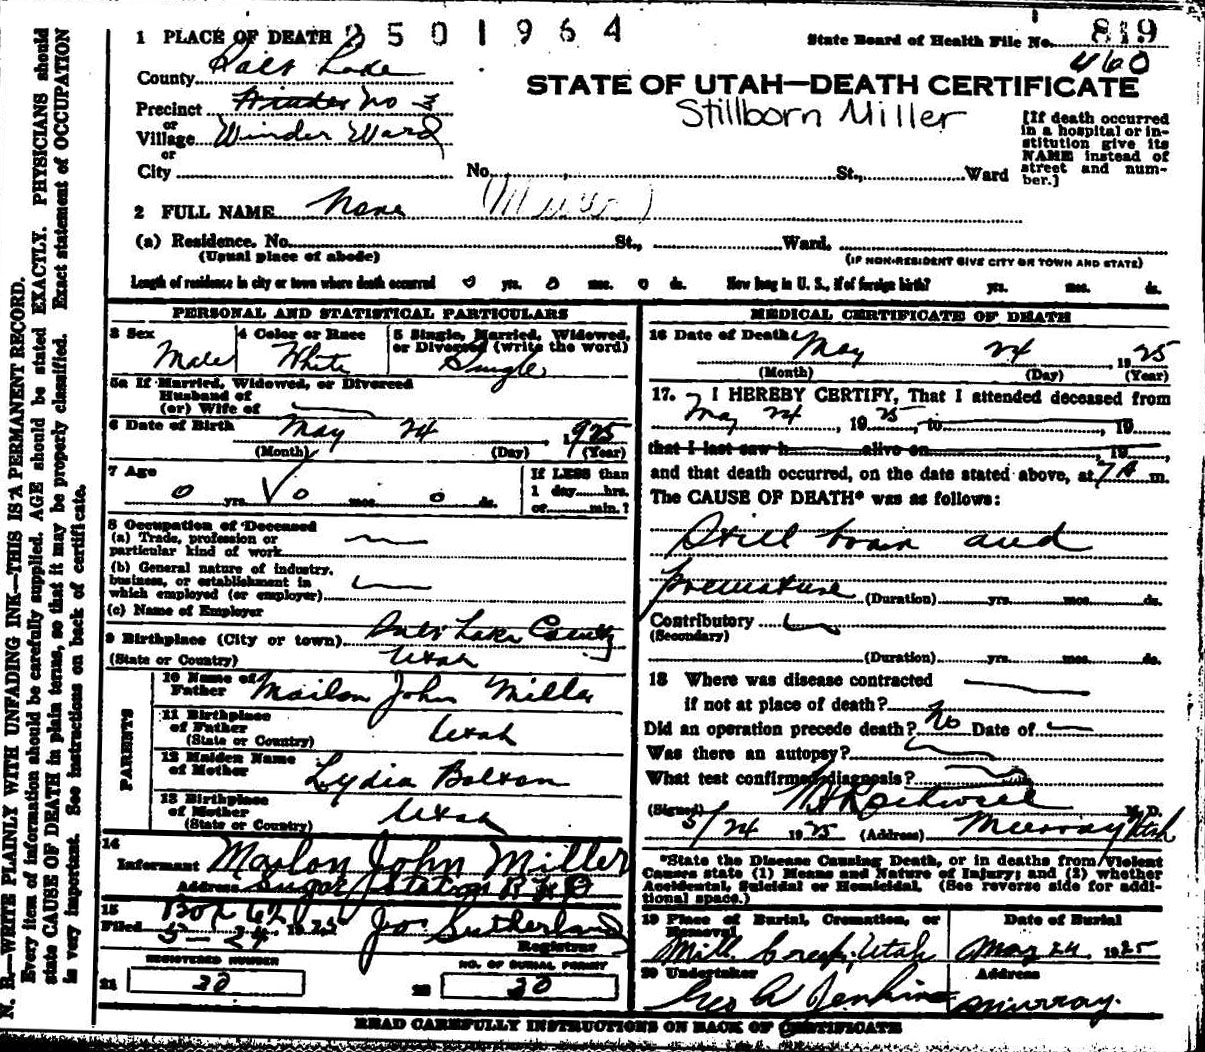 N. B.—WRITE PLAINLY WITH UNFADING INK—THIS IS A PERMANENT RECORD.
Every item of information should be carefully supplied. AGE should be stated EXACTLY. PHYSICIANS should
state CAUSE OF DEATH in plain terms, so that it may be properly classified. Exact statement of OCCUPATION
is very important. See instructions on back of certificate.
1 PLACE OF DEATH 2501964
State Board of Health File No. 819
460
County Salt Lake
STATE OF UTAH—DEATH CERTIFICATE
Stillborn Miller
Precinct Winder No
or
Village Winder Ward
or
City No. St., Ward
[If death occurred
in a hospital or in-
stitution give its
NAME instead of
street and num-
ber.]
2 FULL NAME None (Miller)
(a) Residence. No. St., Ward.
(Usual place of abode) (IF NON-RESIDENT GIVE CITY OR TOWN AND STATE)
Length of residence in city or town where death occurred 0 yrs. 0 mos. 0 ds. How long in U. S., if of foreign birth? yrs. mos. ds.
PERSONAL AND STATISTICAL PARTICULARS
3 Sex Male
4 Color or Race White
5 Single, Married, Widowed,
or Divorced (write the word)
Single
5a If Married, Widowed, or Divorced
Husband of
(or) Wife of
6 Date of Birth May 24, 1925
(Month) (Day) (Year)
7 Age
0 yrs. 0 mos. 0 ds.
If LESS than
1 day hrs.
or min.?
8 Occupation of Deceased
(a) Trade, profession or
particular kind of work
(b) General nature of industry,
business, or establishment in
which employed (or employer)
(c) Name of Employer
9 Birthplace (City or town) Salt Lake County
(State or Country) Utah
PARENTS
10 Name of
Father Mailon John Miller
11 Birthplace
of Father
(State or Country) Utah
12 Maiden Name
of Mother Lydia Bolton
13 Birthplace
of Mother
(State or Country) Utah
14
Informant Marlon John Miller
Address Sugar Station R #
15 Box 62
Filed 5-24 1925 Jos Sutherland
Registrar
REGISTERED NUMBER
21 20
NO. OF BURIAL PERMIT
22 20
MEDICAL CERTIFICATE OF DEATH
16 Date of Death May 24, 1925
(Month) (Day) (Year)
17. I HEREBY CERTIFY, That I attended deceased from
May 24, 1925, to , 19
that I last saw h alive on , 19
and that death occurred, on the date stated above, at 7 A m.
The CAUSE OF DEATH* was as follows:
Still born and
premature
(Duration) yrs. mos. ds.
Contributory
(Secondary)
(Duration) yrs. mos. ds.
18 Where was disease contracted
if not at place of death?
Did an operation precede death? No Date of
Was there an autopsy?
What test confirmed diagnosis?
(Signed) Rockwell M. D.
5/24 1925 (Address) Murray Utah
*State the Disease Causing Death, or in deaths from Violent
Causes state (1) Means and Nature of Injury; and (2) whether
Accidental, Suicidal or Homicidal. (See reverse side for addi-
tional space.)
19 Place of Burial, Cremation, or
Removal
Mill Creek, Utah
Date of Burial
May 24 1925
20 Undertaker
Geo A Jenkins
Address
Murray.
READ CAREFULLY INSTRUCTIONS ON BACK OF CERTIFICATE